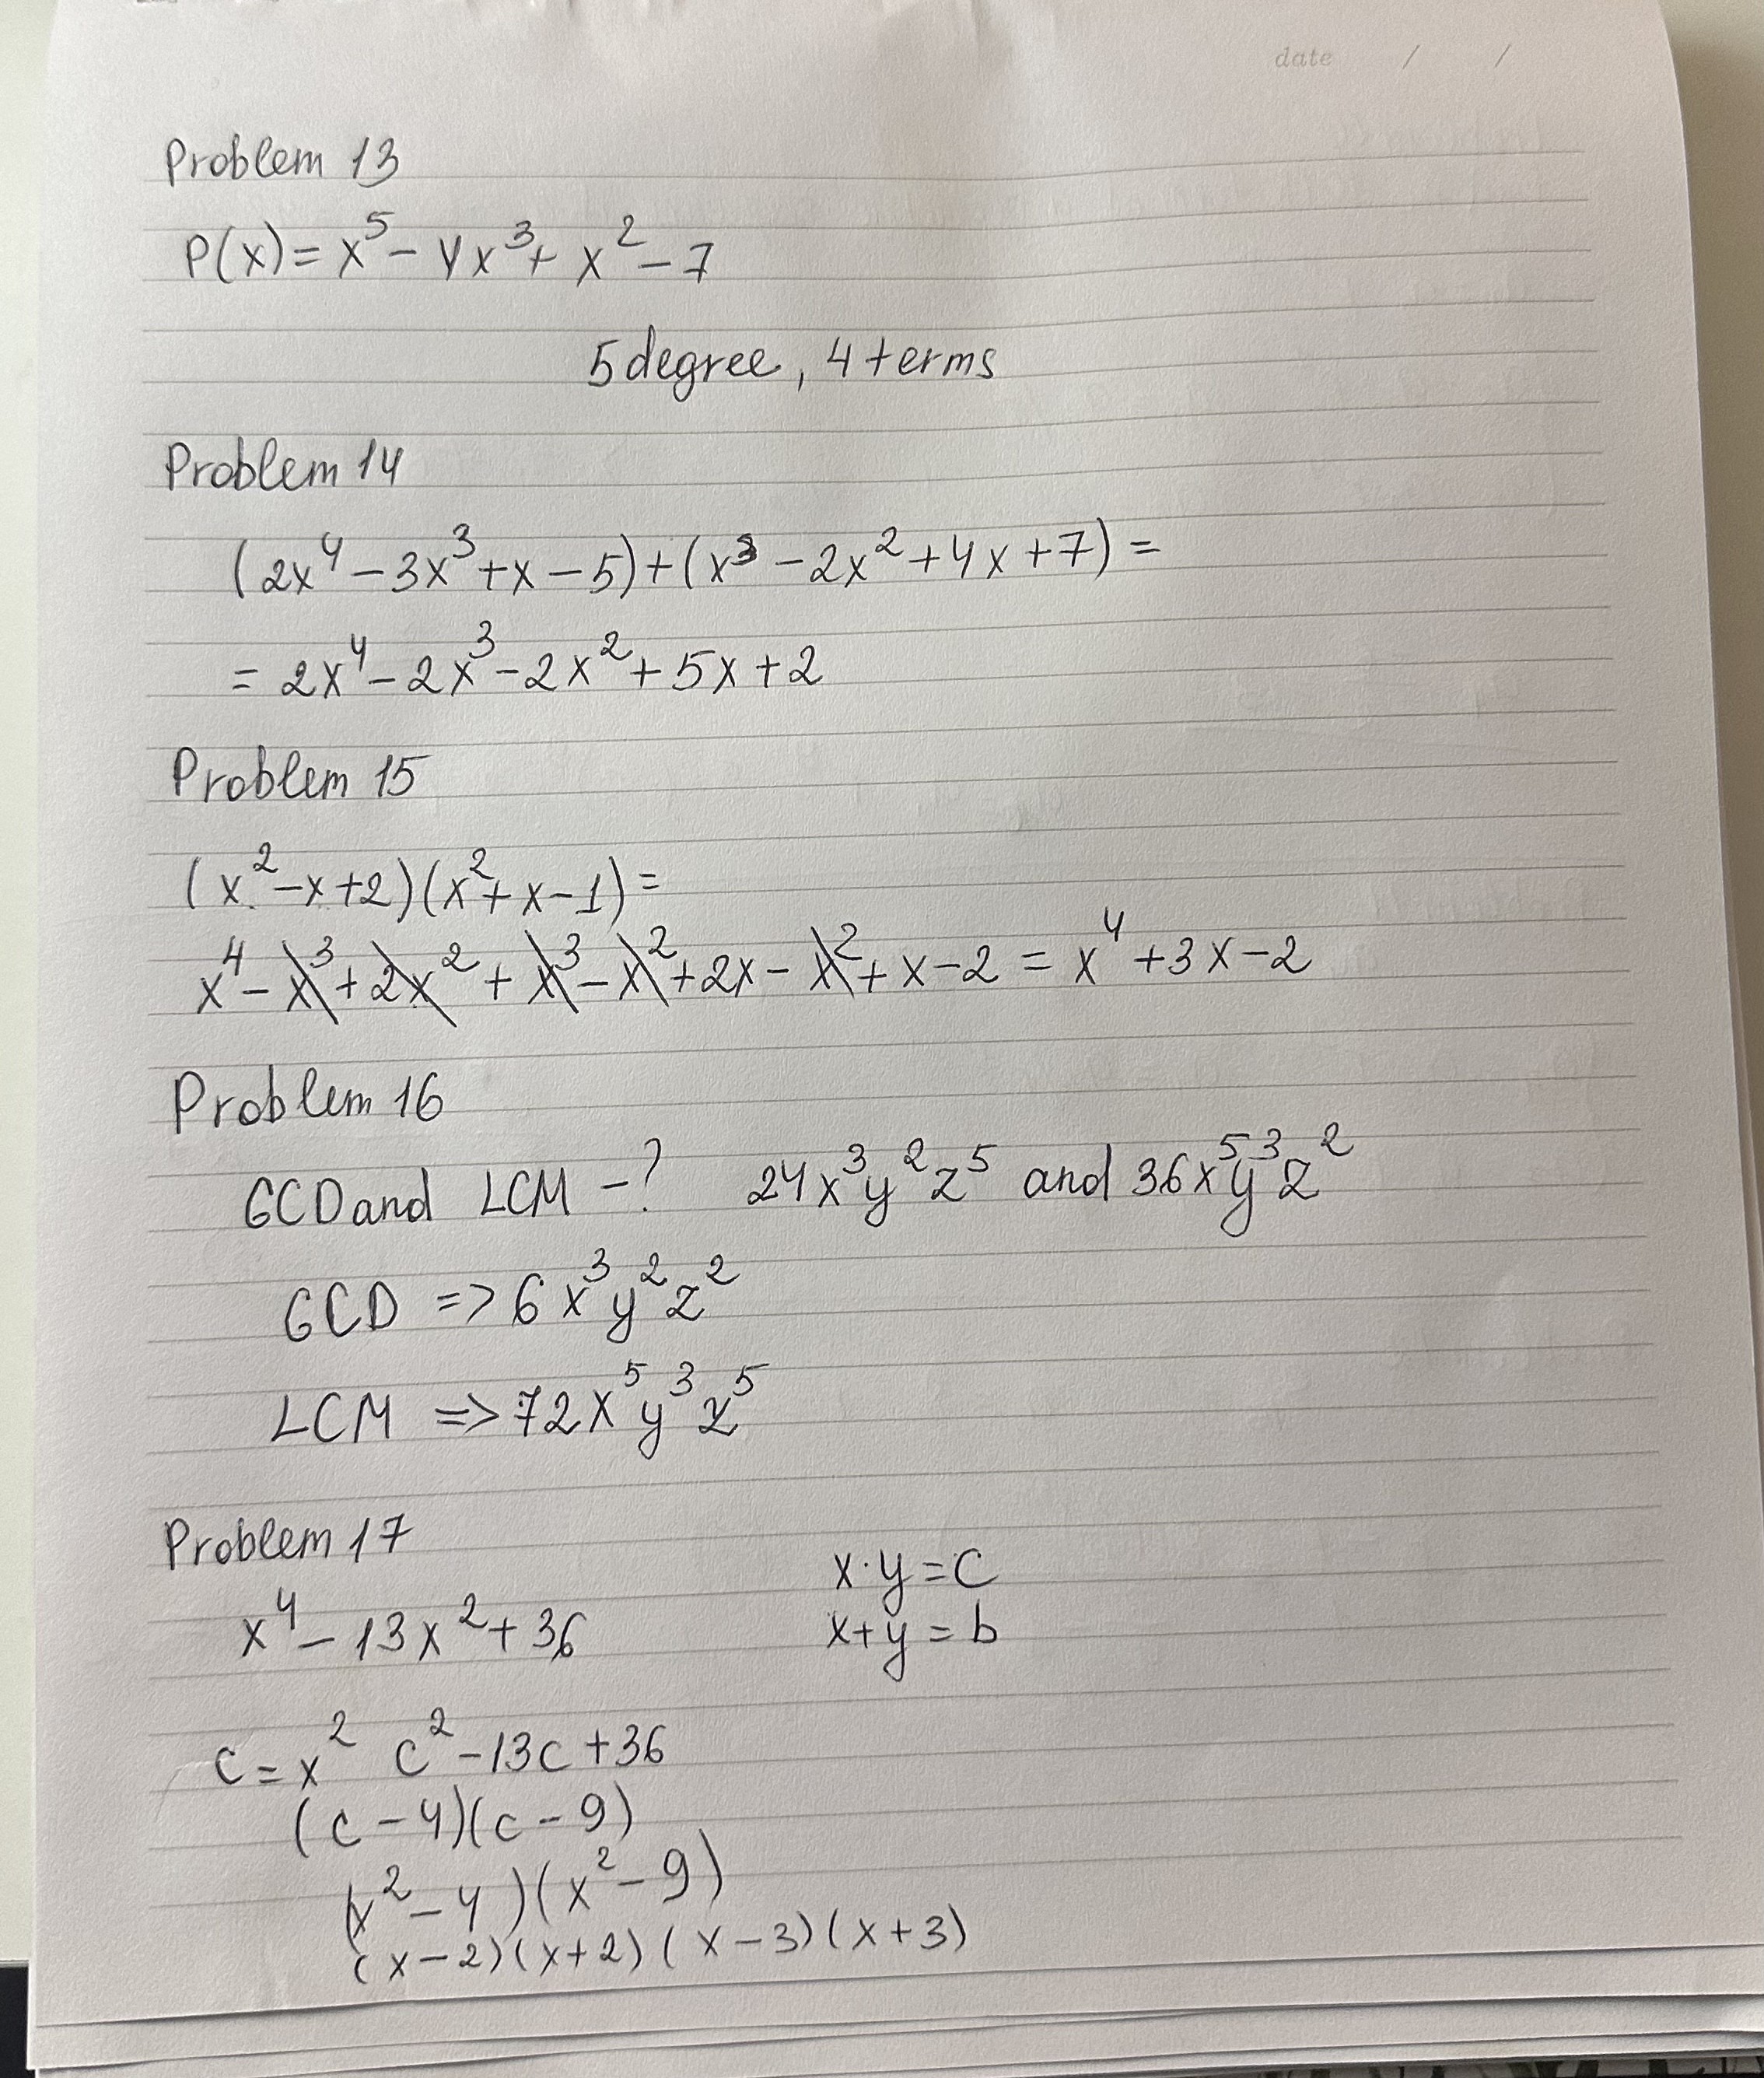 date / /
Problem 13
P(x) = x⁵ - 4x³ + x² - 7
5 degree, 4 terms
Problem 14
(2x⁴ - 3x³ + x - 5) + (x³ - 2x² + 4x + 7) =
= 2x⁴ - 2x³ - 2x² + 5x + 2
Problem 15
(x² - x + 2)(x² + x - 1) =
x⁴ - x³ + 2x² + x³ - x² + 2x - x² + x - 2 = x⁴ + 3x - 2
Problem 16
GCD and LCM - ? 24x³y²z⁵ and 36x⁵y³z²
GCD => 6x³y²z²
LCM => 72x⁵y³z⁵
Problem 17
x⁴ - 13x² + 36
x · y = c
x + y = b
c = x² c² - 13c + 36
(c - 4)(c - 9)
(x² - 4)(x² - 9)
(x - 2)(x + 2)(x - 3)(x + 3)